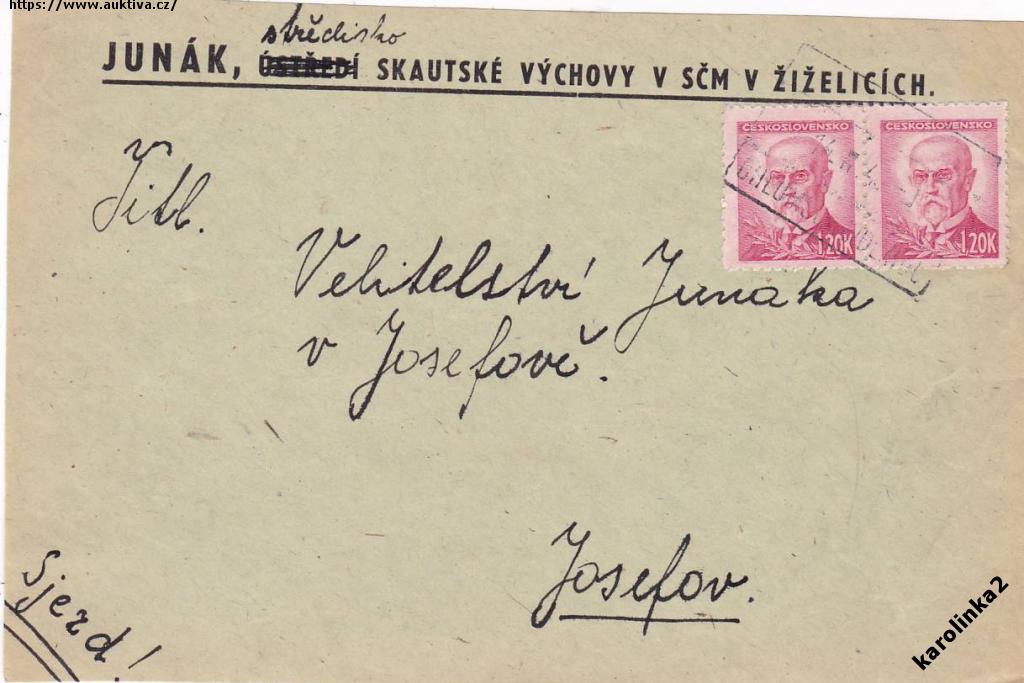 https://www.auktiva.cz/
středisko
JUNÁK, ÚSTŘEDÍ SKAUTSKÉ VÝCHOVY V SČM V ŽIŽELICÍCH.
ČESKOSLOVENSKO ČESKOSLOVENSKO
1,20K 1,20K
Titl.
Velitelství Junáka
v Josefově.
Josefov.
Sjezd!
karolinka2